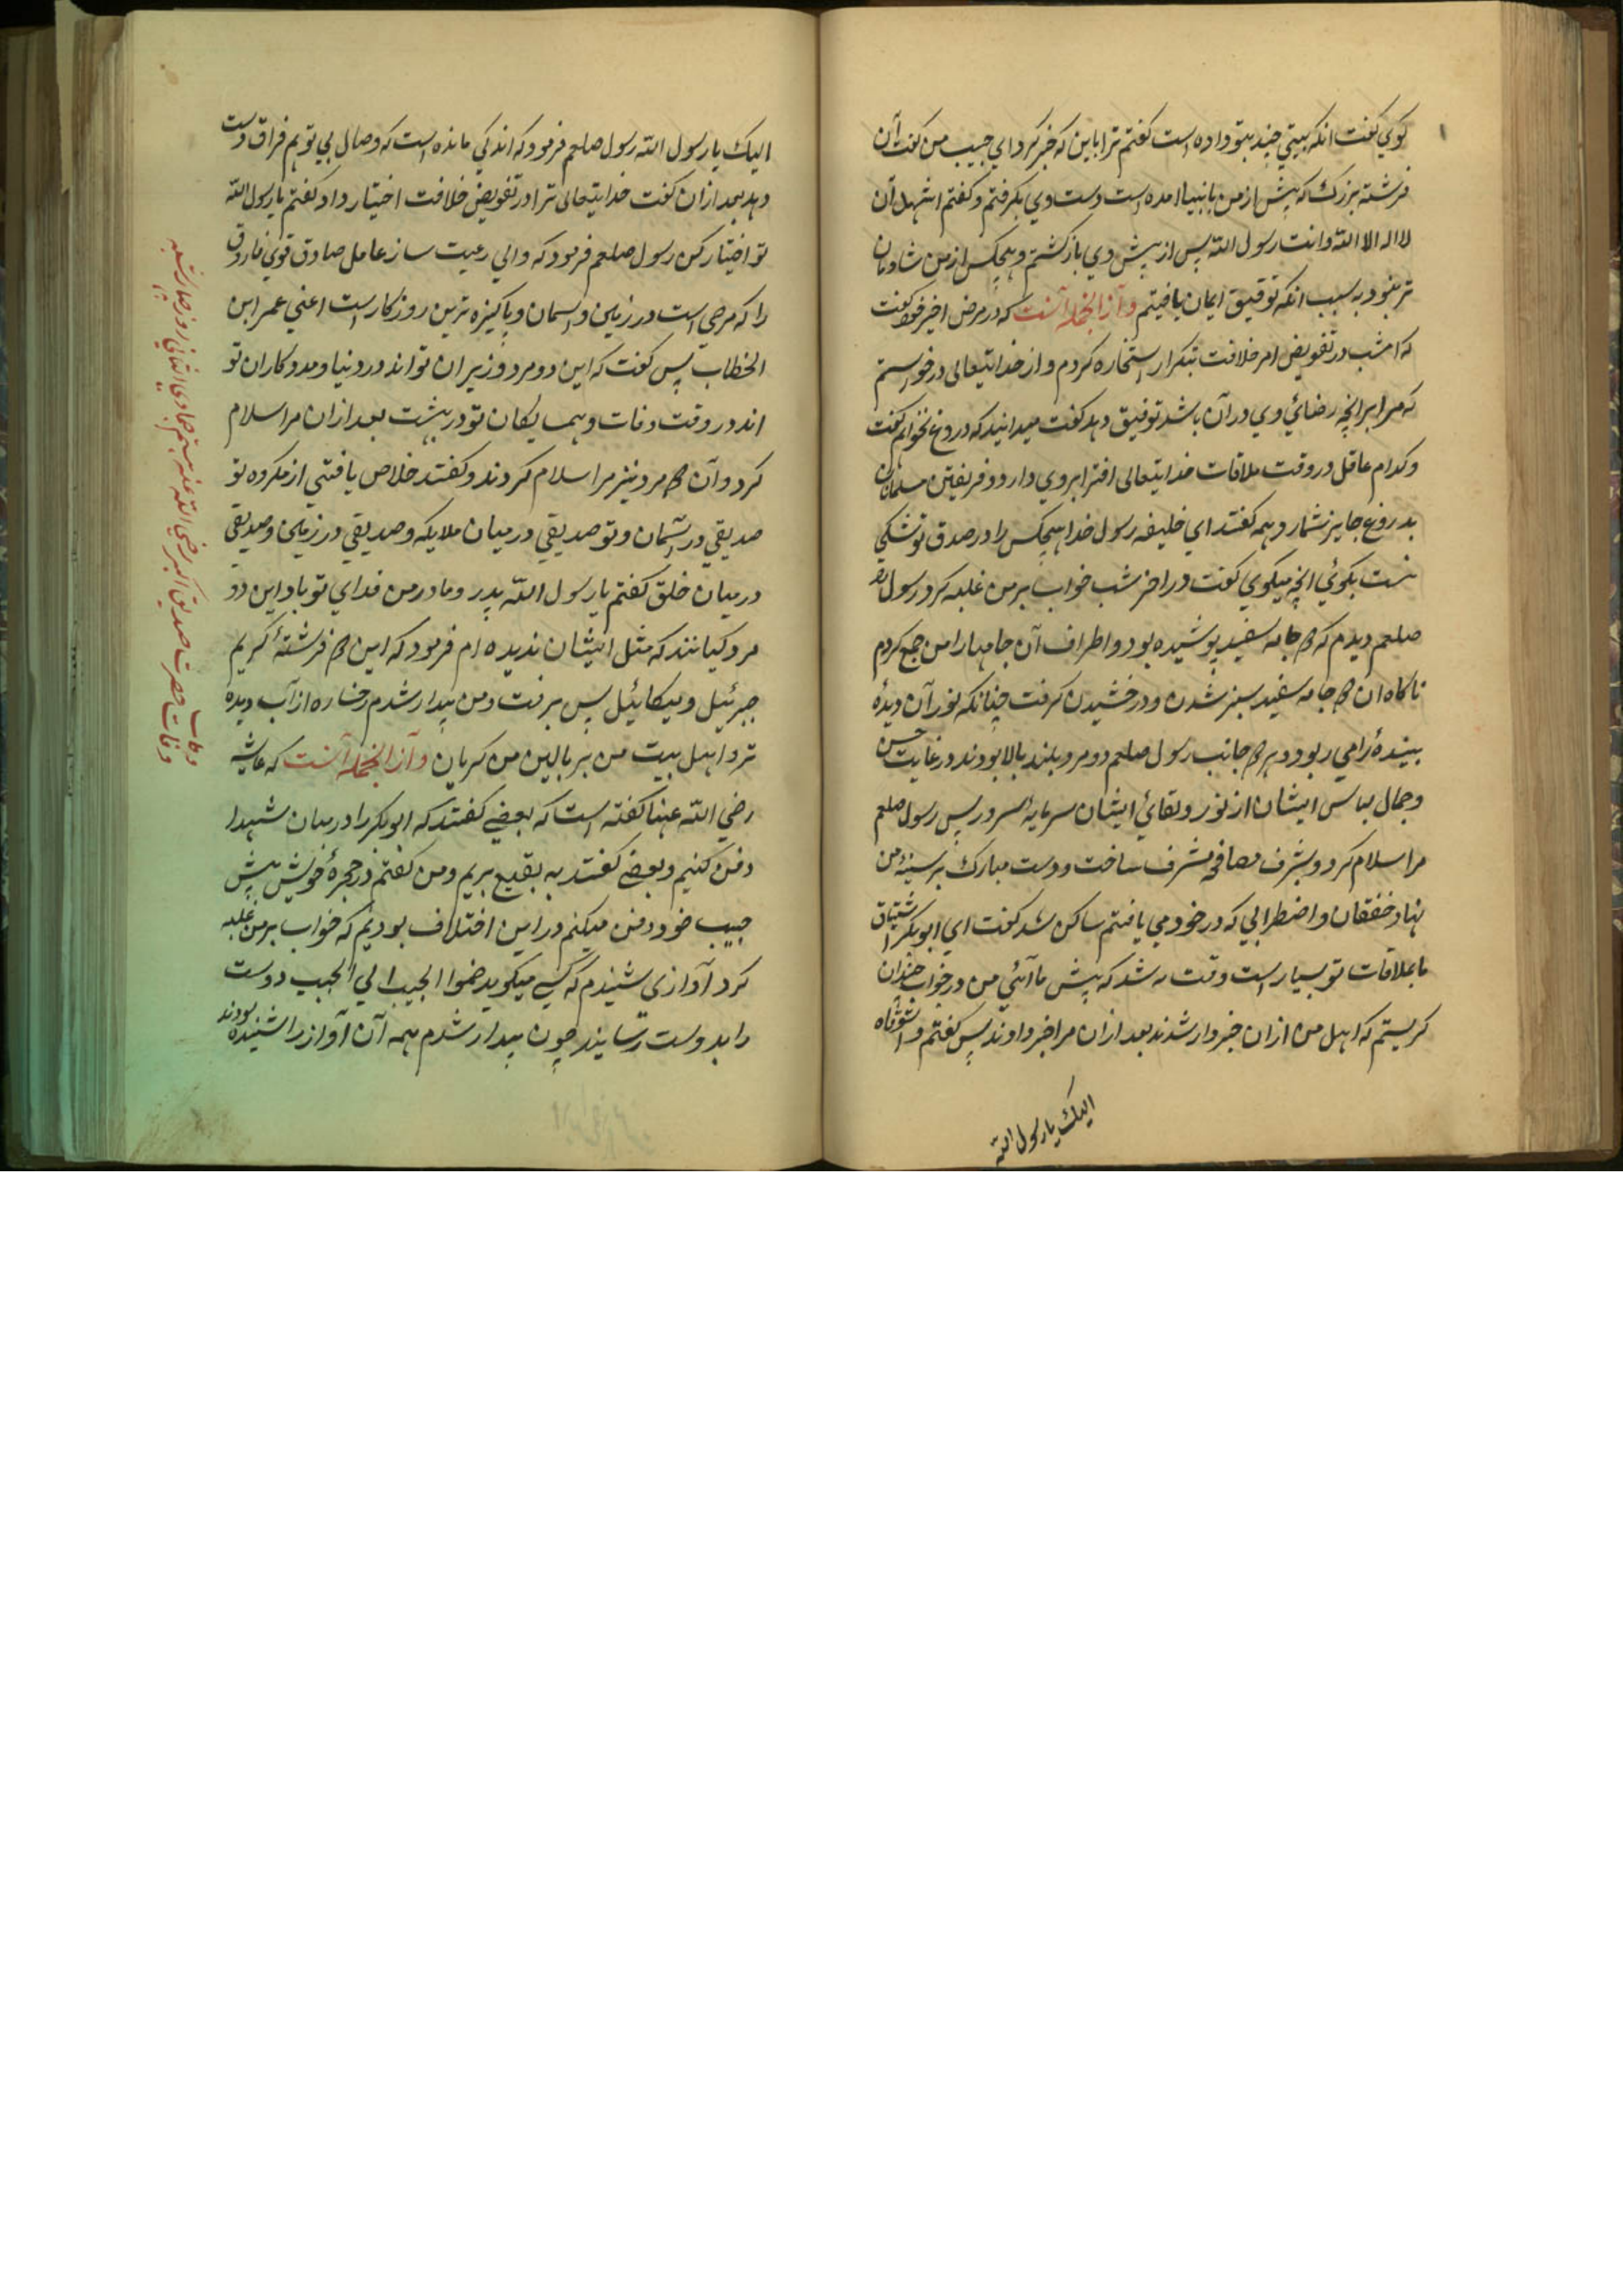 گوی گفت انکه بیتی چند بتو داده است گفتم ترا باین که خبر کرد ای حبیب من گفت آن
فرشته بزرک که پیش از من بانبیا امده است دست وی بکرفتم و گفتم اشهد ان
لا اله الا الله وانت رسول الله پس از پیش وی باز کشتم و هیچکس از من شادمان
تر نبود به سبب انکه توفیق ایمان یافتم وآز انجمله آنست که در مرض اخیر گفت
که امشب در تفویض امر خلافت بتکرار استخاره کردم و از خدایتعالی درخواستم
که مرا برانچه رضائی وی در آن باشد توفیق دهد گفت میدانید که دروغ نخواهم گفت
و کدام عاقل در وقت ملاقات خدایتعالی افترا بر وی دارد و فریفتن مسلمانان
بدروغ جایز شمارد همه گفتند ای خلیفه رسول خدا هیچکس را در صدق تو شکی
نیست بکوئی انچه میکوی گفت در اخر شب خواب بر من غلبه کرد رسول را
صلعم دیدم که دو جامه سفید پوشیده بود و اطراف آن جامها را من جمع کردم
ناکاه ان دو جامه سفید سبز شدن و درخشیدن کرفت چنانکه نور آن دیدهٔ
بینندهٔ را می ربود و بر دو جانب رسول صلعم دو مرد بلند بالا بودند در غایت حسن
و جمال لباس ایشان از نور و لقائی ایشان سرمایهٔ سرور پس رسول صلعم
مرا سلام کرد و بشرف مصافحه مشرف ساخت و دست مبارک بر سینهٔ من
نهاد خفقان و اضطرابی که در خود می یافتم ساکن شد گفت ای ابوبکر اشتیاق
ما بملاقات تو بسیار است وقت نه شد که پیش ما آئی من در خواب چندان
کریستم که اهل من ازان خبردار شدند بعد ازان مرا خبر دادند پس گفتم وا شوقاه
الیک یا رسول الله
الیک یا رسول الله رسول صلعم فرمود که اندکی مانده است که وصال بی توهم فراق دست
دهد بعد ازان گفت خدایتعالی ترا در تفویض خلافت اختیار داد گفتم یا رسول الله
تو اختیار کن رسول صلعم فرمود که والی رعیت ساز عامل صادق قوی فاروق
را که مرضی است در زمین و اسمان و پاکیزه ترین روزکار است اعنی عمر ابن
الخطاب پس گفت که این دو مرد وزیران تو اند در دنیا و مددکاران تو
اند در وقت وفات و همسایکان تو در بهشت بعد ازان مرا سلام
کرد و آن دو مرد نیز مرا سلام کردند و گفتند خلاص یافتی از مکروه تو
صدیقی در آسمان و تو صدیقی در میان ملایکه و صدیقی در زمین و صدیقی
در میان خلق گفتم یا رسول الله پدر و مادر من فدای تو باد این دو
مرد کیانند که مثل ایشان ندیده ام فرمود که این دو فرشتهٔ کریم
جبرئیل و میکائیل پس برفت و من بیدار شدم رخساره از آب دیده
تر و اهل بیت من بر بالین من کریان وآز انجمله آنست که عایشه
رضی الله عنها گفته است که بعضی گفتند که ابوبکر را در میان شهدا
دفن کنیم و بعضی گفتند به بقیع بریم و من گفتم در حجرهٔ خویش پیش
حبیب خود دفن میکنم در این اختلاف بودیم که خواب بر من غلبه
کرد آوازی شنیدم که کسی میکوید ضموا الحبیب الی الحبیب دوست
را بدوست رسانید چون بیدار شدم همه آن آواز را شنیده بودند
وفات
وفات حضرت صدیق اکبر رضی الله عنه بیستم جمادی الثانی روز چهار شنبه